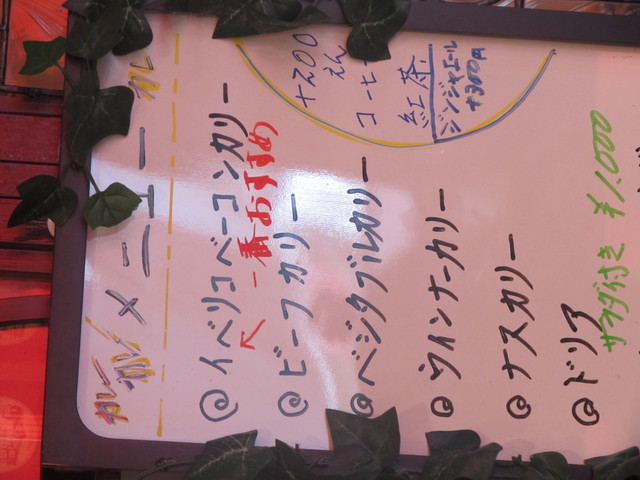 カレー
メニュー
カレ
@ イベリコベーコンカリー
一番おすすめ
@ ビーフカリー
@ ベジタブルカリー
@ ウインナーカリー
@ ナスカリー
@ ドリア
サラダ付き ¥1,000
+200
えん
コーヒー
紅茶
ジンジャエール
+300円